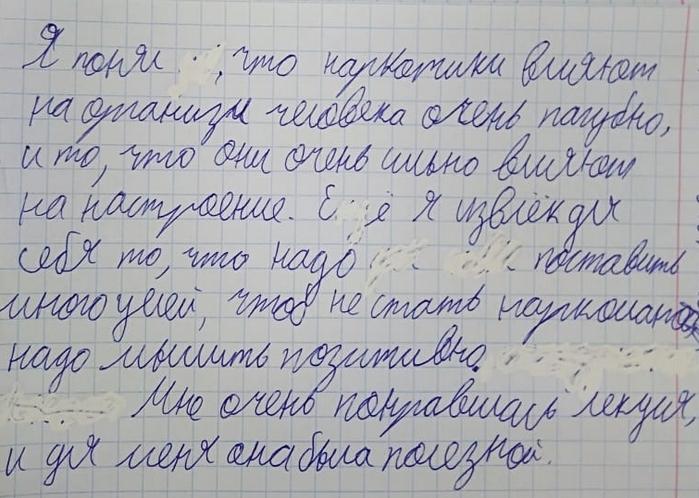 Я поня , что наркотики влияют
на организм человека очень пагубно,
и то, что они очень сильно влияют
на настроение. Ещё я извлёк для
себя то, что надо поставить
много целей, чтоб не стать наркоманом
надо мыслить позитивно.
Мне очень понравилась лекция,
и для меня она была полезной.